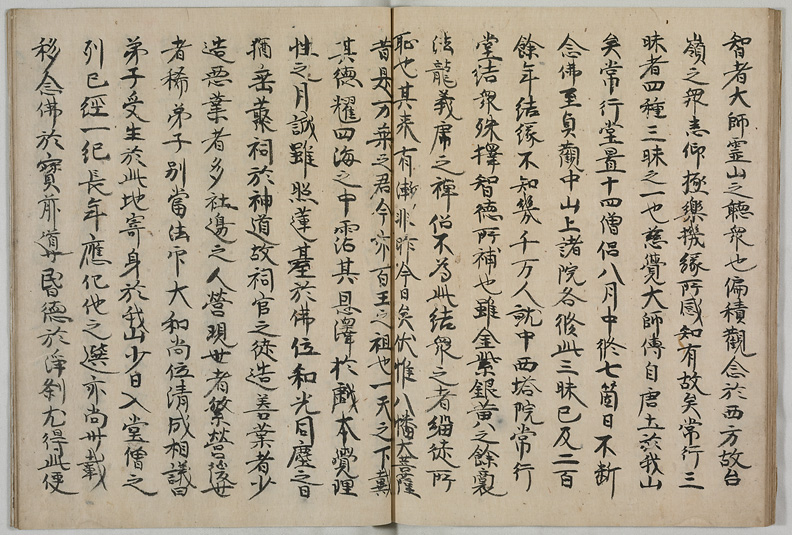 智者大師霊山之聴衆也偏積観念於西方故台
嶺之衆悉仰極楽機縁所感知有故矣常行三
昧者四種三昧之一也慈覚大師傳自唐土於我山
矣常行堂置十四僧侶八月中修七箇日不断
念佛至貞観中山上諸院各修此三昧已及二百
餘年結縁不知幾千万人就中西塔院常行
堂結衆殊擇智徳所補也雖金紫銀黄之餘裔
法龍義虎之禅侶不為此結衆之者緇徒所
恥也其来有漸非昨今日矣伏惟八幡大菩薩
昔是万乗之君今亦百王之祖也一天之下戴
其徳耀四海之中霑其恩澤於戯本覚理
性之月誠雖照蓮基於佛位和光同塵之日
猶垂叢祠於神道故祠官之徒造善業者少
造悪業者多社邊之人営現世者繁営後世
者稀弟子別當法印大和尚位清成相議曰
弟子受生於此地寄身於我山少日入堂僧之
列已經一紀長年應仁他之選亦尚卅載
移念佛於寶前導昏徳於浄刹尤得此便